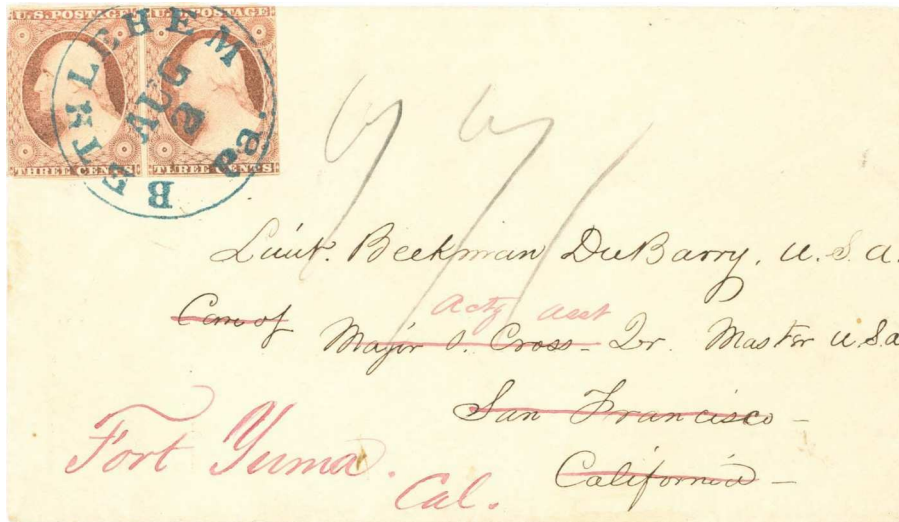 U.S. POSTAGE U.S. POSTAGE
BETHLEHEM Pa.
AUG
2
THREE CENTS THREE CENTS
Lieut. Beekman DuBarry, U.S.A.
Care of
Actg Asst
Major O. Cross - Qr. Master U.S.A
San Francisco -
California -
Fort Yuma.
Cal.